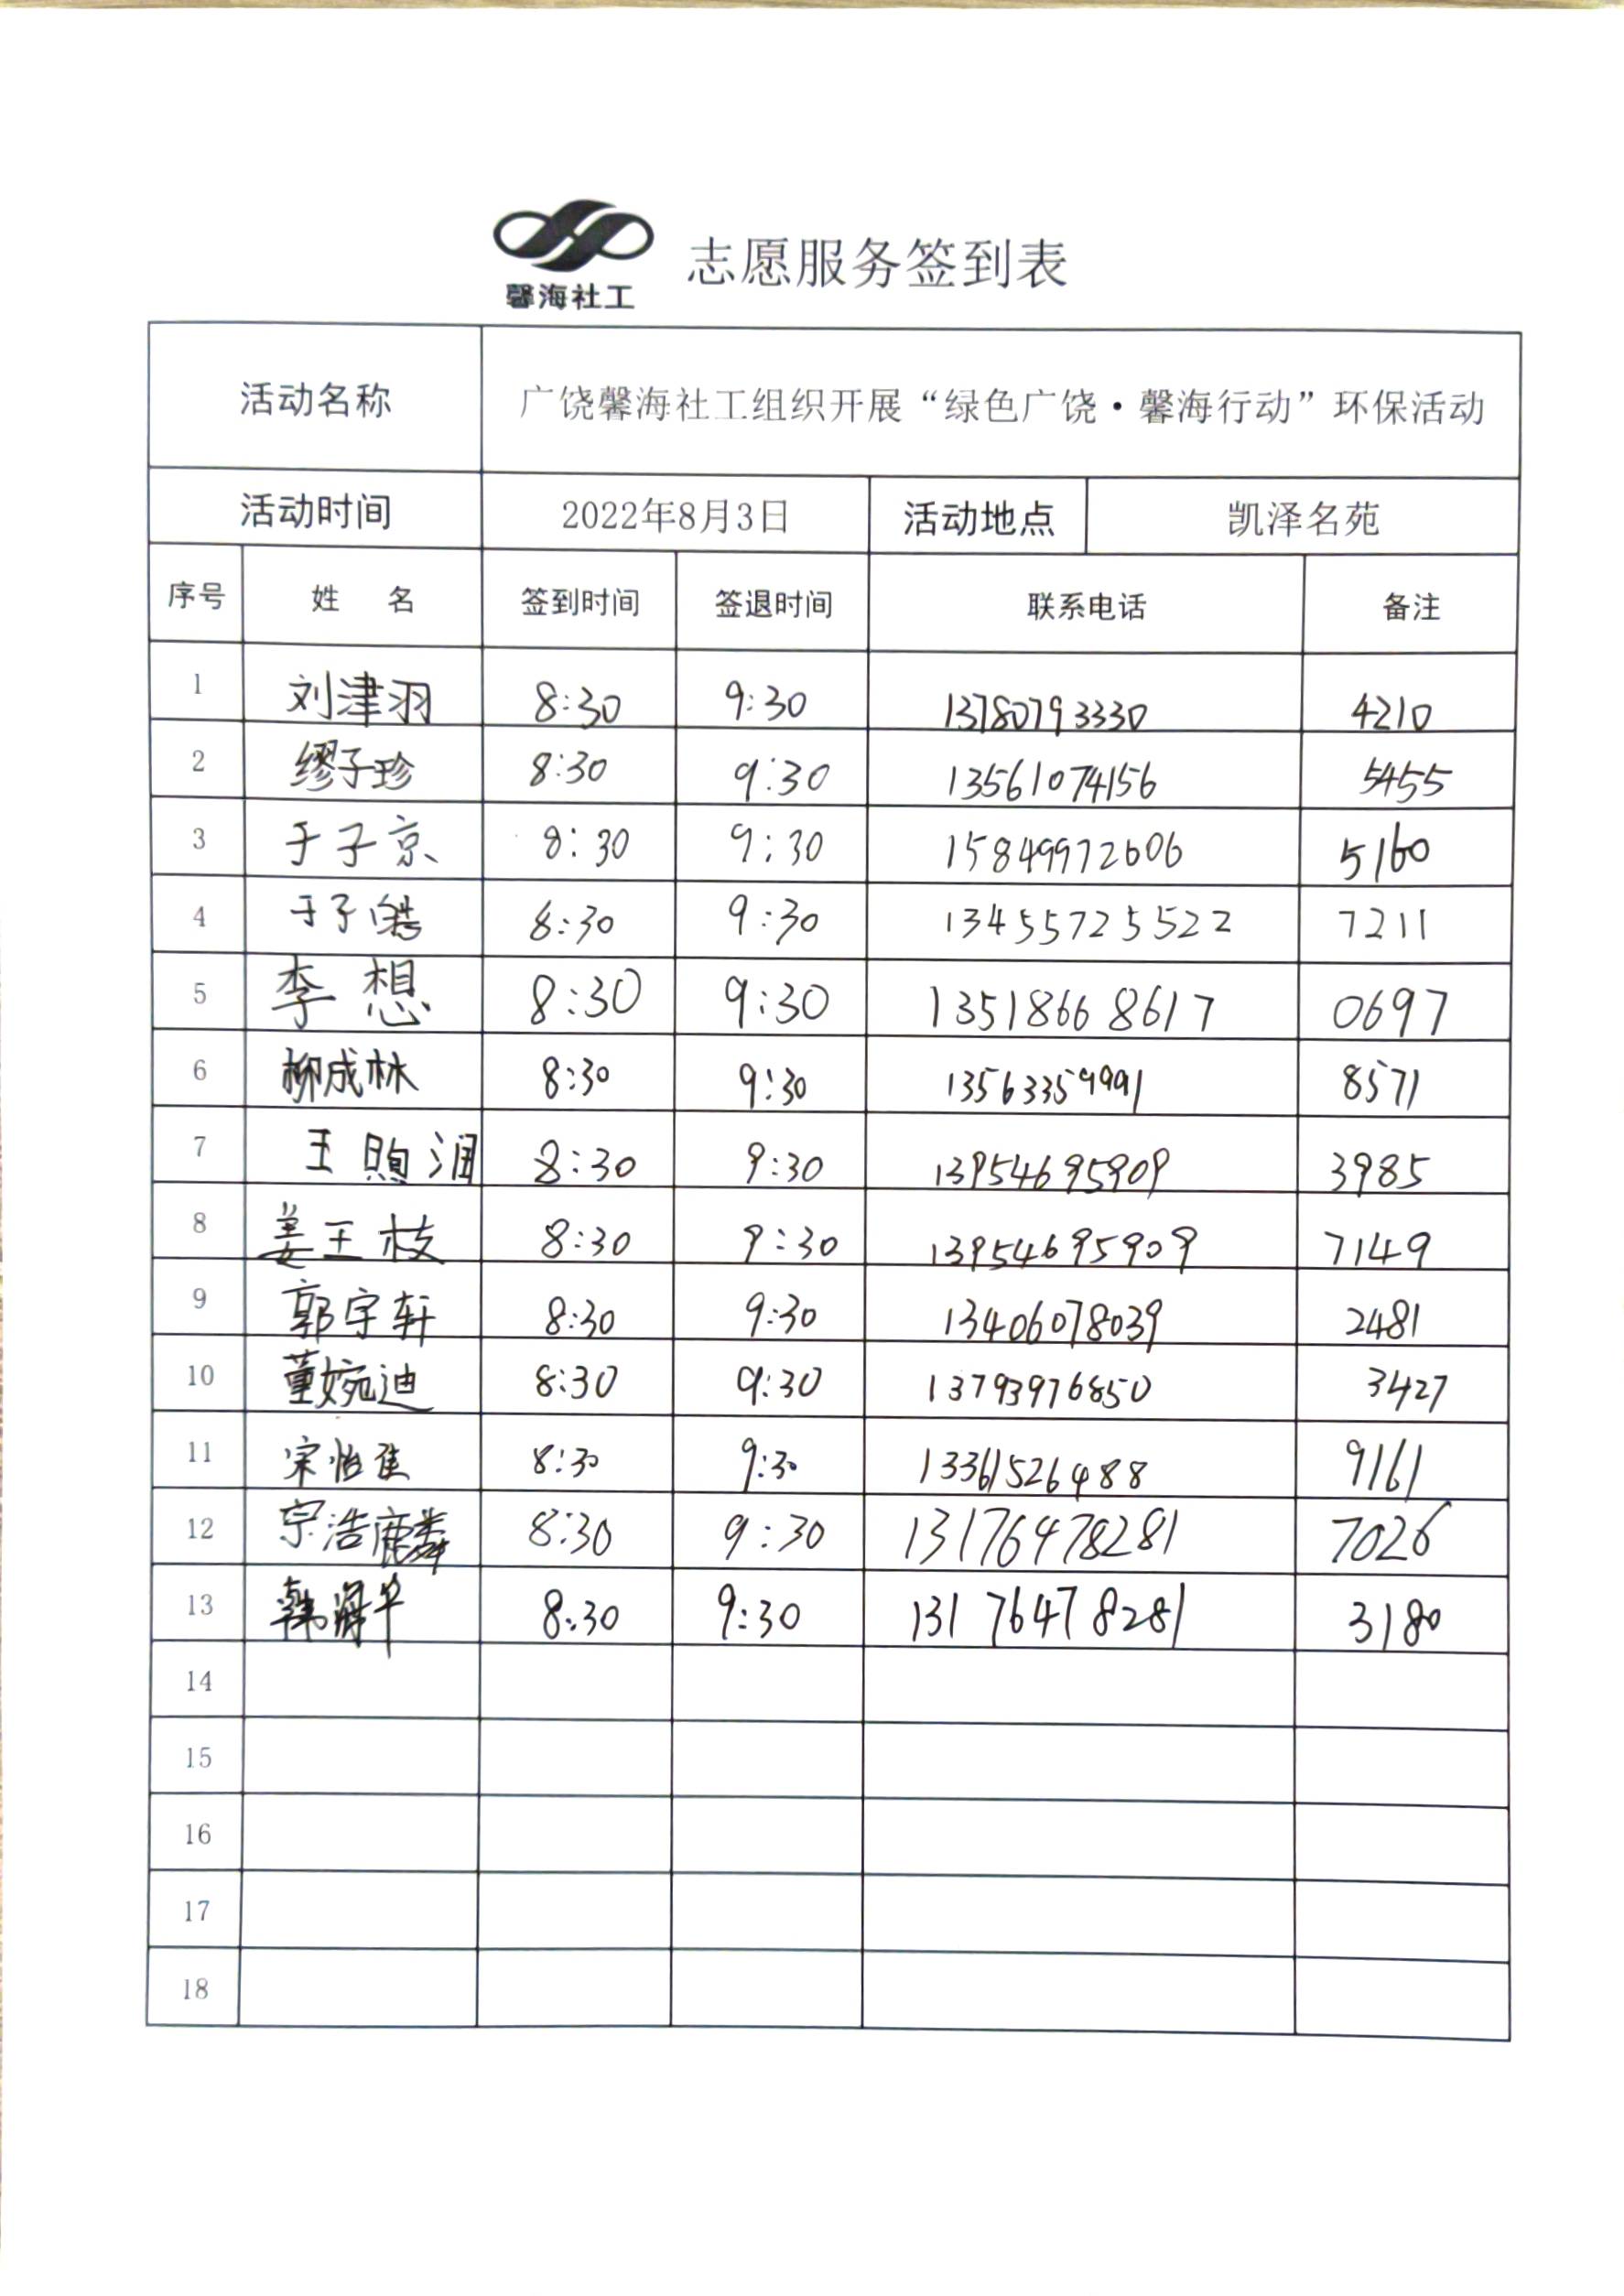 馨海社工
志愿服务签到表
活动名称 广饶馨海社工组织开展“绿色广饶·馨海行动”环保活动
活动时间 2022年8月3日 活动地点 凯泽名苑
序号 姓 名 签到时间 签退时间 联系电话 备注
1 刘津羽 8:30 9:30 13780793330 4210
2 缪子珍 8:30 9:30 13561074156 5455
3 于子京 8:30 9:30 15849972606 5160
4 于子皓 8:30 9:30 13455725522 7211
5 李想 8:30 9:30 13518668617 0697
6 柳成林 8:30 9:30 13563359991 8571
7 王煦润 8:30 9:30 13954695909 3985
8 姜玉枝 8:30 9:30 13954695909 7149
9 郭宇轩 8:30 9:30 13406078039 2481
10 董婉迪 8:30 9:30 13793976850 3427
11 宋怡佳 8:30 9:30 13361526488 9161
12 宗浩麟 8:30 9:30 13176478281 7026
13 韩海华 8:30 9:30 13176478281 3180
14
15
16
17
18